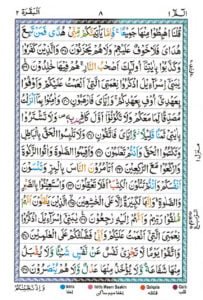 الٓمّٓ ١ ٨ اَلْبَقَرَة ٢
قُلْنَا اهْبِطُوْا مِنْهَا جَمِيْعًا ۚ فَاِمَّا يَاْتِيَنَّكُمْ مِّنِّيْ هُدًى فَمَنْ تَبِعَ
هُدَايَ فَلَا خَوْفٌ عَلَيْهِمْ وَلَا هُمْ يَحْزَنُوْنَ ۝ وَالَّذِيْنَ كَفَرُوْا
وَكَذَّبُوْا بِاٰيٰتِنَآ اُولٰٓئِكَ اَصْحٰبُ النَّارِ ۚ هُمْ فِيْهَا خٰلِدُوْنَ ۝
يٰبَنِيْٓ اِسْرَآءِيْلَ اذْكُرُوْا نِعْمَتِيَ الَّتِيْٓ اَنْعَمْتُ عَلَيْكُمْ وَاَوْفُوْا
بِعَهْدِيْٓ اُوْفِ بِعَهْدِكُمْ ۚ وَاِيَّايَ فَارْهَبُوْنِ ۝ وَاٰمِنُوْا بِمَآ اَنْزَلْتُ
مُصَدِّقًا لِّمَا مَعَكُمْ وَلَا تَكُوْنُوْٓا اَوَّلَ كَافِرٍۢ بِهٖ ۠ وَلَا تَشْتَرُوْا
بِاٰيٰتِيْ ثَمَنًا قَلِيْلًا ۫ وَّاِيَّايَ فَاتَّقُوْنِ ۝ وَلَا تَلْبِسُوا الْحَقَّ بِالْبَاطِلِ
وَتَكْتُمُوا الْحَقَّ وَاَنْتُمْ تَعْلَمُوْنَ ۝ وَاَقِيْمُوا الصَّلٰوةَ وَاٰتُوا الزَّكٰوةَ
وَارْكَعُوْا مَعَ الرّٰكِعِيْنَ ۝ اَتَاْمُرُوْنَ النَّاسَ بِالْبِرِّ وَتَنْسَوْنَ
اَنْفُسَكُمْ وَاَنْتُمْ تَتْلُوْنَ الْكِتٰبَ ۭ اَفَلَا تَعْقِلُوْنَ ۝ وَاسْتَعِيْنُوْا
بِالصَّبْرِ وَالصَّلٰوةِ ۭ وَاِنَّهَا لَكَبِيْرَةٌ اِلَّا عَلَى الْخٰشِعِيْنَ ۝ الَّذِيْنَ
يَظُنُّوْنَ اَنَّهُمْ مُّلٰقُوْا رَبِّهِمْ وَاَنَّهُمْ اِلَيْهِ رٰجِعُوْنَ ۝ يٰبَنِيْٓ اِسْرَآءِيْلَ
اذْكُرُوْا نِعْمَتِيَ الَّتِيْٓ اَنْعَمْتُ عَلَيْكُمْ وَاَنِّيْ فَضَّلْتُكُمْ عَلَى الْعٰلَمِيْنَ ۝
وَاتَّقُوْا يَوْمًا لَّا تَجْزِيْ نَفْسٌ عَنْ نَّفْسٍ شَيْئًا وَّلَا يُقْبَلُ
مِنْهَا شَفَاعَةٌ وَّلَا يُؤْخَذُ مِنْهَا عَدْلٌ وَّلَا هُمْ يُنْصَرُوْنَ ۝